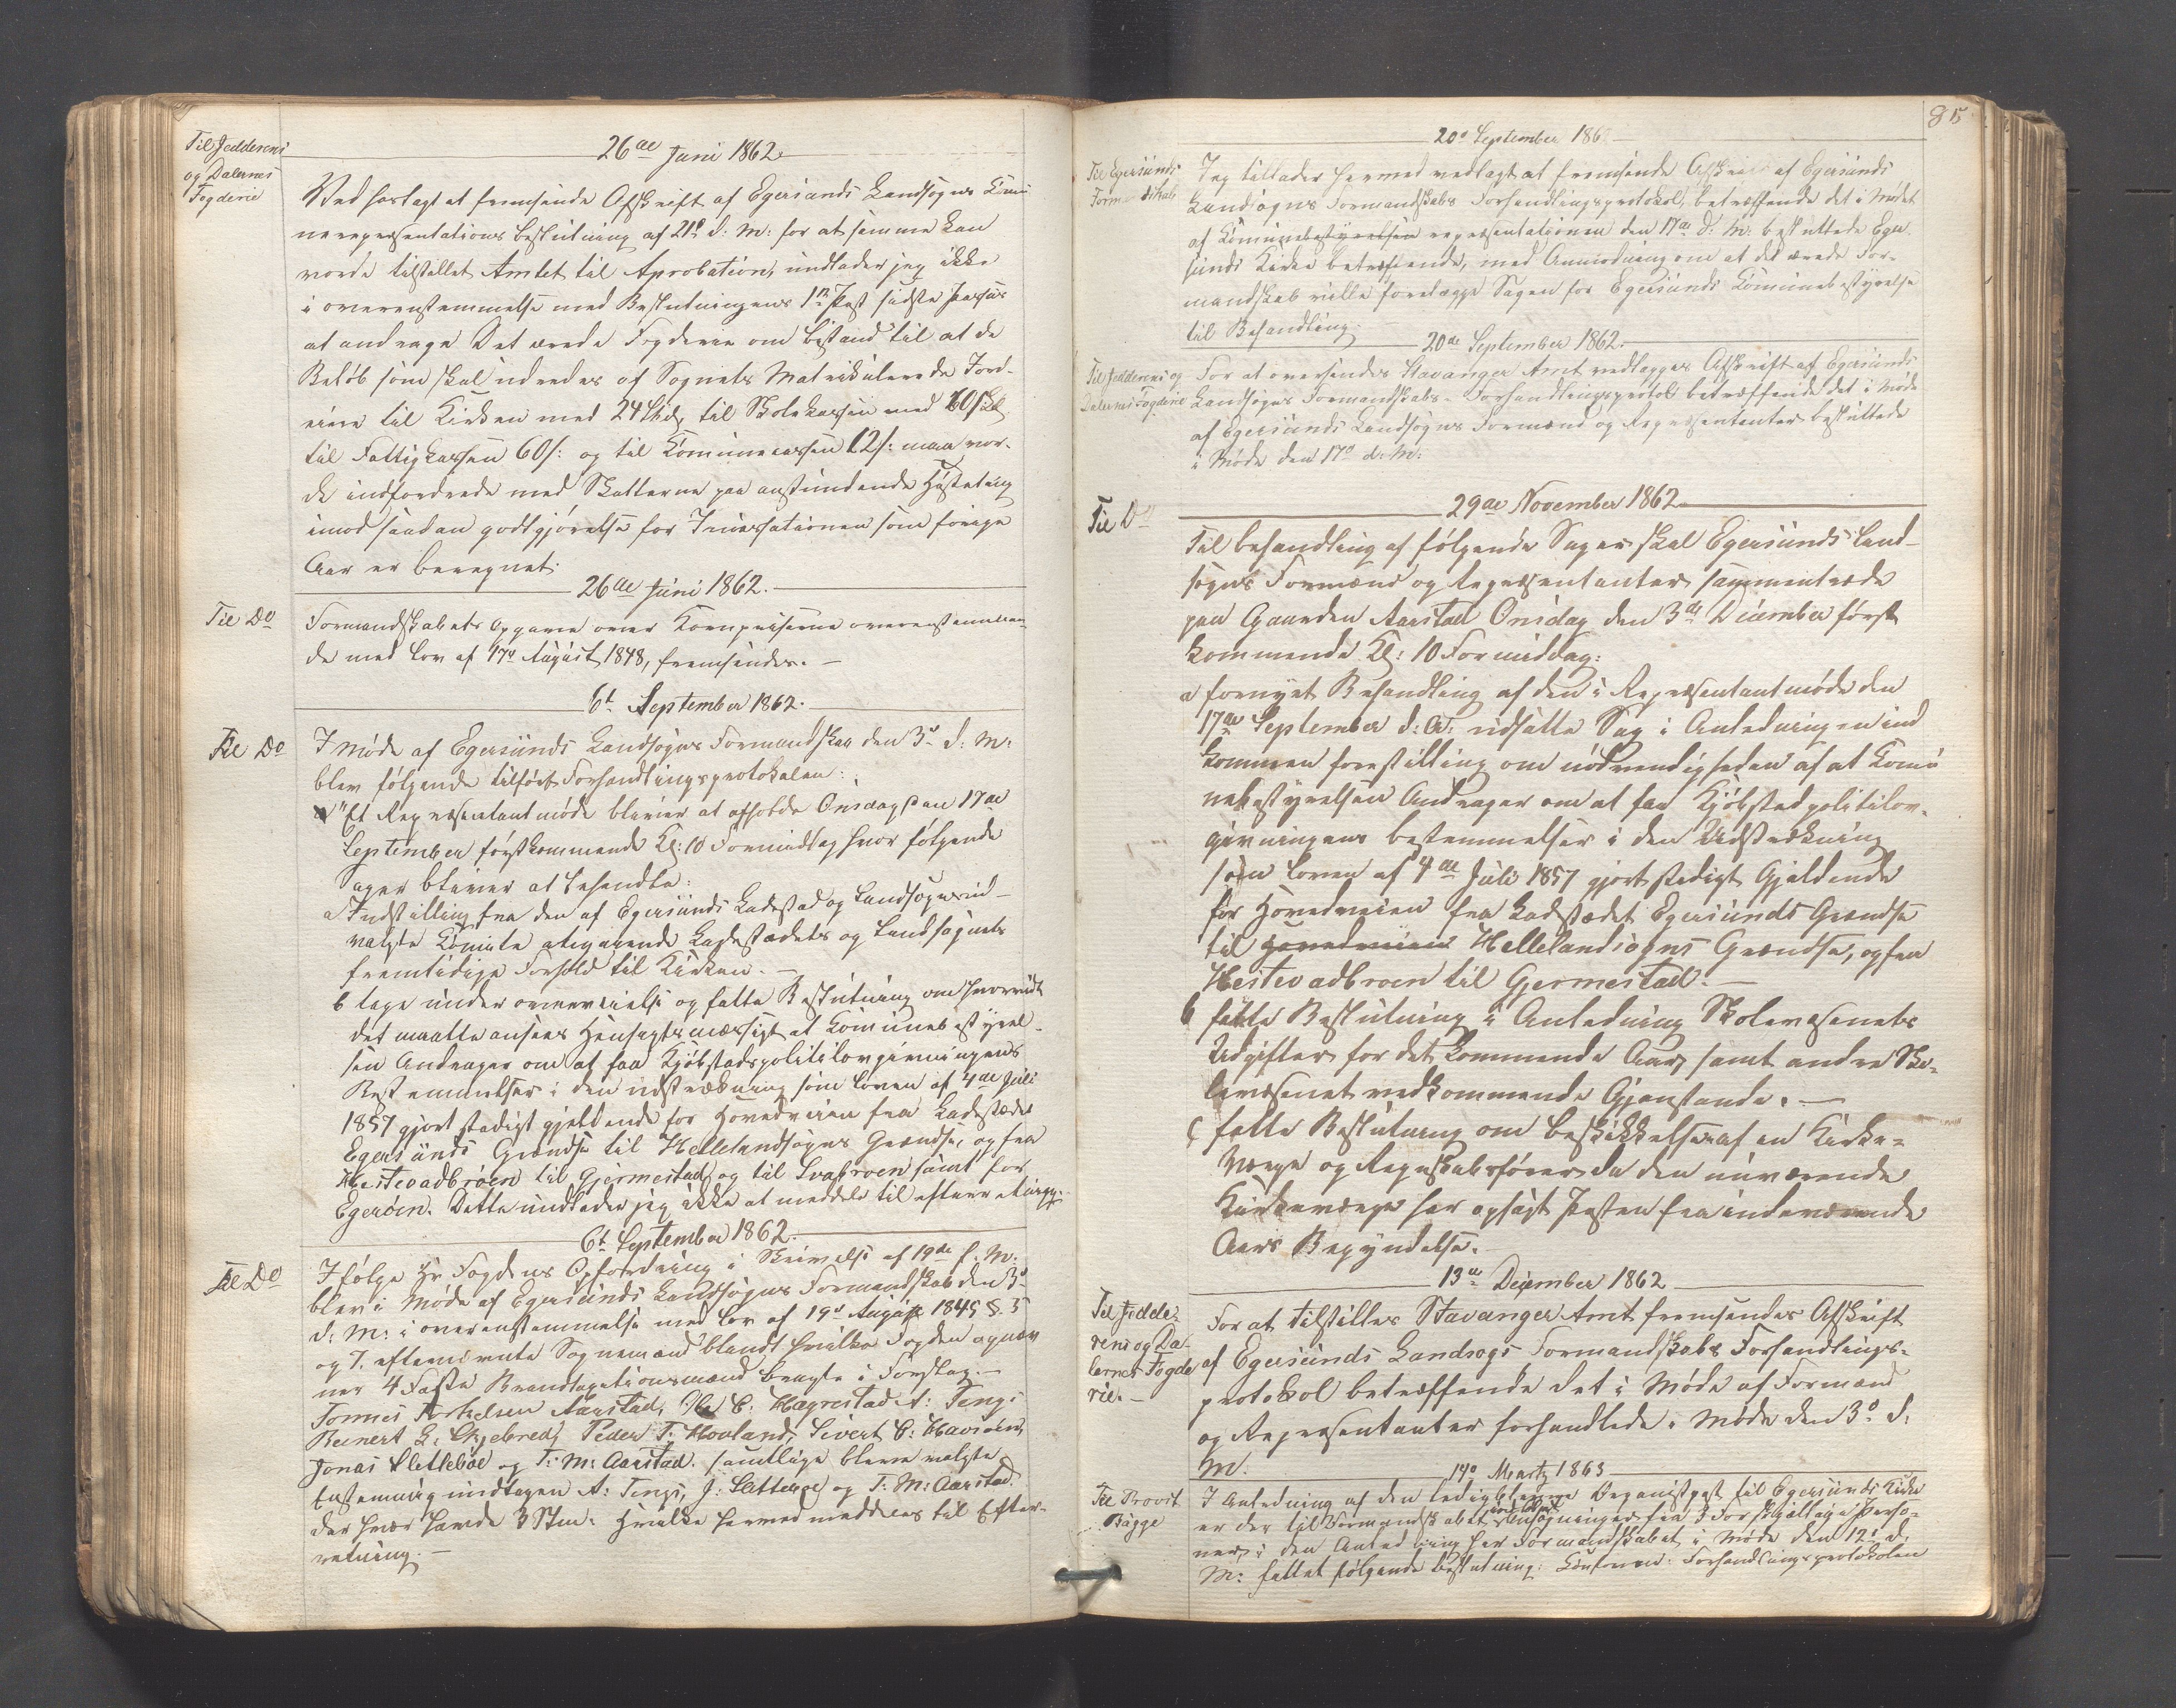 Til Jedderens
og Dalernes
Fogderie
26de Juni 1862.
Ved herlagt at fremsende Afskrift af Egersunds Landsogns Comu
nerepresentations beslutning af 21de d: M: for at samme kan
vorde tilstillet Amtet til Aprobation, undlader jeg ikke
i overenstemmelse med Beslutningens 1n Post sidste Passus
at andrage Det ærede Fogderie om bistand til at de
Beløb som skal udredes af Sognets Matrikulerede Jord-
eiere til Kirken med 24 Skil, til Skolekassen med 60 Skl
til Fattigkassen 60/: og til Comunecassen 12/: maa vor-
de indfordrede med Skatterne paa anstundende Høstting
imod saadan godtgjørelse for Incassationen som forige
Aar er beregnet.
26de Juni 1862.
Til Do
Formandskabets Opgave over Kornpriserne overenstemmen-
de med Lov af 17de August 1848, fremsendes. –
6te September 1862.
Til Do
I Møde af Egersunds Landsogns Formandskab den 3de d: M:
blev følgende tilført Forhandlingsprotokolen:
"Et Represetantmøde bliver at afholde Onsdag den 17de
September førstkommende Kl: 10 Formiddag hvor følgende
Sager bliver at behandle:
a Indstilling fra den af Egersunds Ladested og Landsogn ud-
valgte Comite angaaende Ladestædets og Landsognets
fremtidige Forhold til Kirken. –
b tage under overveielse og fatte Beslutning om hvorvidt
det maatte ansees Hensigtsmæssigt at Comunebestyrel-
sen Andrager om at faa Kjøbstadspolitilovgivningens
Bestemmelser i den udstrækning som Loven af 4de Juli
1857 gjort stadigt gjeldende for Hovedveien fra Ladestædet
Egersunds Grændse til Hellelandsogns Grændse, og fra
Hestevadbroen til Gjermestad og til Svaabroen samt for
Egerøen. Dette undlader jeg ikke at meddele til efterretning.
6te September 1862.
Til Do
Ifølge Hr Fogdens Opfordring i Skrivelse af 19de f. M.
blev i Møde af Egersunds Landsogns Formandskab den 3de
d: M: i overenstemmelse med Lov af 19de August 1845 §. 5
og 7. efternevnte Sognemænd blandt hvilke Fogden opnæv
ner 4 Faste Brandtaxtionsmænd bragte i Forslag. –
Tonnes Torkelsen Aarstad, Ole C. Hægrestad A: Tengs
Reinert L. Skjebred, Peder T. Hovland, Sivert C. Havsøen
Jonas Slettebøe og T: M: Aarstad. samtlige bleve valgte
undtagen A: Tengs, J: Slettebøe og T. M: Aarstad.
der hver havde 3 Stm. Hvilke hermed meddeles til Efter-
retning. –
85
20de September 186
Til Egersunds
Formandskab
Jeg tillader hermed vedlagt at fremsende Afskrift af Egersunds
Landsogns Formandskabs Forhandlingsprotokol, betræffende det i Mødet
af Comunebestyrelsen representationen den 17de d: M: besluttede Eger
sunds Kirke betræffende, med Anmodning om at det ærede For-
mandskab ville forelægge Sagen for Egersunds Comunebestyrelse
til Behandling. –
20de September 1862.
Til Jedderens og
Dalernes Fogderie
For at oversendes Stavanger Amt vedlægges Afskrift af Egersunds
Landsogns Formandskabs-Forhandlingsprotol betræffende det i Møde
af Egersunds Landsogns Formænd og Represententer besluttede
i Møde den 17de d: M:
29de November 1862
Til Do
Til behandling af følgende Sager skal Egersunds Land-
sogns Formænd og Represententer sammentræde
paa Gaarden Aarstad Onsdag den 3die December først
kommende Kl: 10 Formiddag:
a fornyet Behandling af den i Represetantmøde den
17de September d: A: udsatte Sag i Anledning en ind
kommen forestilling om nødvendigheden af at Comu
nebestyrelsen Andrager om at faa Kjøbstadpolitilov-
givningens bestemmelser i den Udstrækning
som Loven af 4de Juli 1857 gjort stadigt Gjeldende
for Hovedveien fra Ladestædet Egersunds Grændse
til Hovedveien Hellelandsogns Grændse, og fra
Hestevadbroen til Germestad. –
b fatte Beslutning i Anledning Skolevæsenets
Udgifter for det kommende Aar, samt andre Sko-
levæsenet vedkommende Gjenstande. –
c fatte Beslutning om beskikkelse af en Kirke-
Værge og Regnskabsfører da den nuværende
Kirkeværge har opsagt Posten fra indeværende
Aars Begyndelse.
13de December 1862
Til Jedde-
rens og Da-
lernes Fogde
rie. –
For at tilstilles Stavanger Amt fremsendes Afskrift
af Egersunds Landsogs Formandskabs Forhandlings-
protokol betræffende det i Møde af Formænd
og Represententer forhandlede i Møde den 3de d.
M.
14de Martz 1863
Til Provst
Bugge
I Anledning af den ledigblevne Organistpost til Egersunds Kirke
er der til Formandskabet indkomet Ansøgninger fra 3 Forskjellige Perso-
ner, i den Anledning har Formandskabet i Møde den 12te d.
M: fattet følgende beslutning: Conferer: Forhandlingsprotokolen